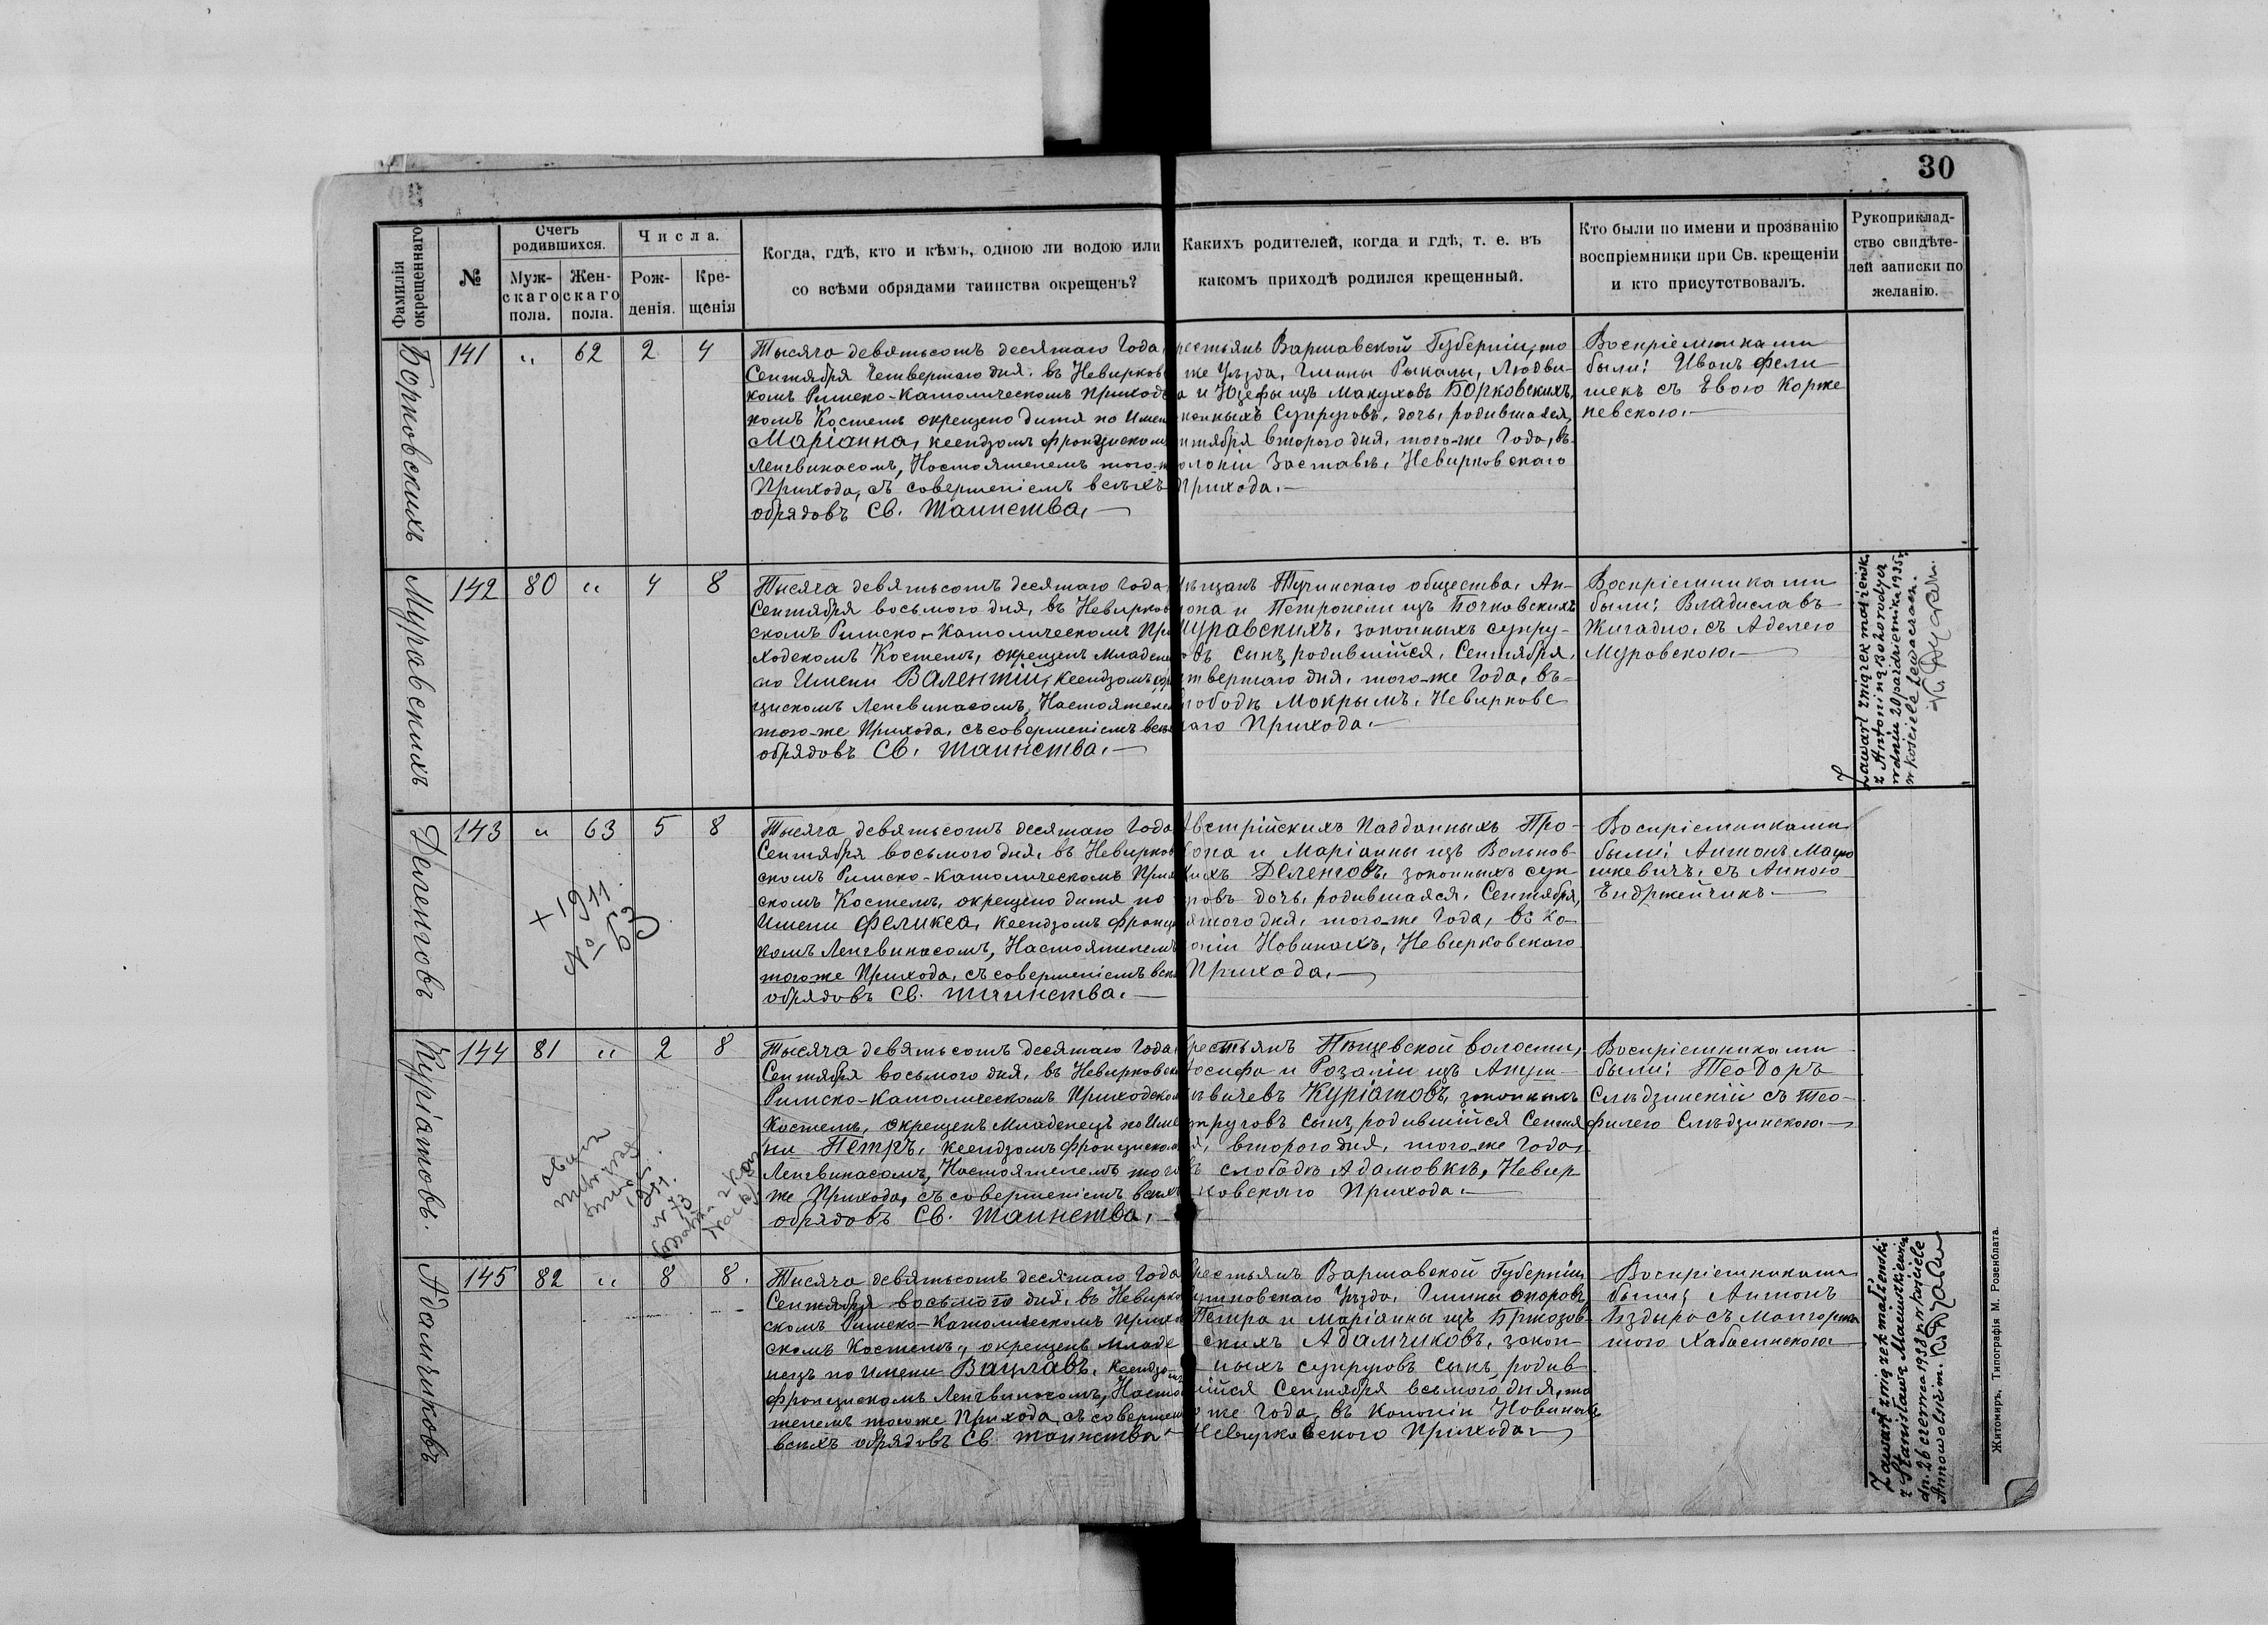 30
Фамилія окрещеннаго
№
Счетъ родившихся.
Муж-
скаго
пола.
Жен-
скаго
пола.
Числа.
Рож-
денія.
Кре-
щенія
Когда, гдѣ, кто и кѣмъ, одною ли водою или
со всѣми обрядами таинства окрещенъ?
Какихъ родителей, когда и гдѣ, т. е. въ
какомъ приходѣ родился крещенный.
Кто были по имени и прозванію
воспріемники при Св. крещеніи
и кто присутствовалъ.
Рукоприклад-
ство свидѣте-
лей записки по
желанію.
Борковскихъ
141 „ 62 2 4
Тысяча девятьсотъ десятаго Года
Сентября Четвертаго дня, въ Невирков
комъ Римско-Католическомъ Приход
комъ Костелѣ окрещено дитя по Имен
Маріанна, ксендзомъ Францискомъ
Ленгвинасомъ, Настоятелемъ того-ж
Прихода, съ совершеніемъ всѣхъ
обрядовъ Св. Таинства.
рестьянъ Варшавской Губерніи, то
же Уѣзда, Гмины Рыкалы, Людви-
а и Юзефы изъ Макуховъ Борковскихъ,
конныхъ Супруговъ, дочь, родившаяся,
нтября второго дня, того-же Года, въ
олоніи Заставѣ, Невирковскаго
Прихода.
Воспріемниками
были: Иванъ Фели
шекъ съ Евою Корже
невскою.
Муравскихъ
142 80 „ 4 8
Тысяча девятьсотъ десятаго Года,
Сентября восьмого дня, въ Невирков
скомъ Римско-Католическомъ При
ходскомъ Костелѣ, окрещенъ Младене
по Имени Валентій, ксендзомъ Фра
цискомъ Ленгвинасомъ, Настоятеле
того-же Прихода, съ совершеніемъ всѣ
обрядовъ Св. Таинства.
ѣщанъ Тучинскаго общества, Ан-
тона и Петронели изъ Бочковскихъ
Муравскихъ, законныхъ супру-
овъ сынъ, родившійся, Сентября,
твертаго дня, того-же Года, въ
лободѣ Мокрымъ, Невирковс
каго Прихода.
Воспріемниками
были: Владиславъ
Жигадло, съ Аделею
Муровскою.
Zawarł związek małżeńsk.
z Antoniną Bohorodyer
w dniu 20 października 1935 r.
w kościele Lewaczach.
Деленговъ
143 „ 63 5 8
+ 1911.
№ 63
Тысяча девятьсотъ десятаго Года
Сентября восьмого дня, въ Невирков
скомъ Римско-Католическомъ Прих
скомъ Костелѣ, окрещено дитя по
Имени Феликса, ксендзомъ Францис
комъ Ленгвинасомъ, Настоятелемъ
того же Прихода, съ совершеніемъ всѣх
обрядовъ Св. Таинства.
Австрійскихъ Падданныхъ Про-
копа и Маріанны изъ Вольнов-
кихъ Деленговъ, законныхъ суп
уговъ дочь, родившаяся, Сентября,
ятого дня, того-же Года, въ Ко-
лоніи Новинахъ, Невирковского
Прихода.
Воспріемниками
были: Антонъ Мацю
шкевичъ, съ Анною
Ендржейчикъ.
Куріатовъ.
144 81 „ 2 8
1911.
№ 73
Тысяча девятьсотъ десятаго Года
Сентября восьмого дня, въ Невирковско
Римско-Католическомъ Приходском
Костелѣ, окрещенъ Младенецъ по Име
ни Петръ, ксендзомъ Францискомъ
Ленгвинасомъ, Настоятелемъ того
же Прихода, съ совершеніемъ всѣхъ
обрядовъ Св. Таинства.
рестьянъ Пѣщевской волости,
Іосифа и Розаліи изъ Апуш-
ьвичевъ Куріатовъ, законныхъ
пруговъ сынъ, родившійся Сентя
я, второго дня, того же Года,
въ слободѣ Адамовкѣ, Невир
ковскаго Прихода.
Воспріемниками
были: Теодоръ
Слѣдзинскій съ Тео-
филею Слѣдзинскою.
Адамчиковъ
145 82 „ 8 8.
Тысяча девятьсотъ десятаго Года
Сентября восьмого дня, въ Невирко
скомъ Римско-Католическомъ Прихо
скомъ Костелѣ, окрещенъ Младе
нецъ по Имени Вацлавъ, ксендзомъ
Францискомъ Ленгвинасомъ, Насто
телемъ того же Прихода, съ совершен
всѣхъ обрядовъ Св. Таинства
рестьянъ Варшавской Губерніи
Петра и Маріанны изъ Бржозов-
скихъ Адамчиковъ, закон-
ныхъ супруговъ сынъ, родив
шійся Сентября восьмого дня, то
же Года, въ Колоніи Новинахъ
Невирковского Прихода
Воспріемниками
были, Антонъ
Бздыра съ Маргорта
тою Хабасинскою
Zawarł związek małżeński
z Stanisławą Maciuszkiewicz
dn. 26 czerwca 1938 r. w kościele
Annowolskim.
Житомиръ, Типографія М. Розенблата.